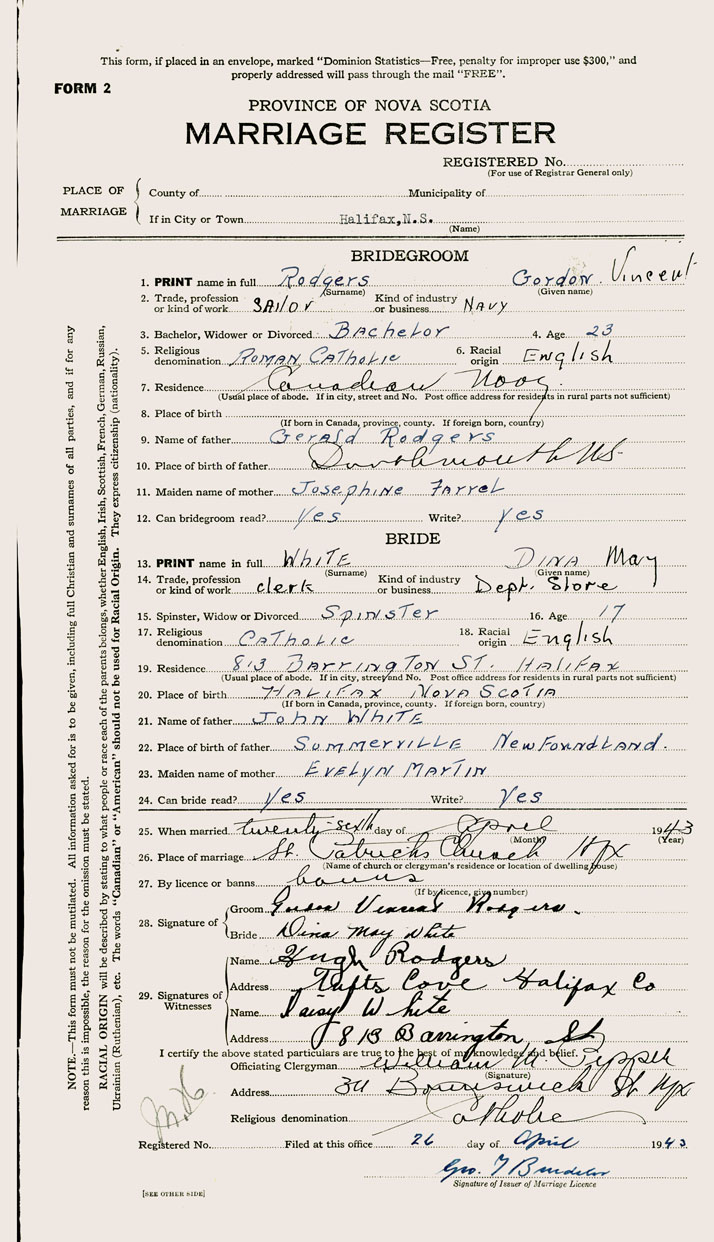 This form, if placed in an envelope, marked "Dominion Statistics—Free, penalty for improper use $300," and
properly addressed will pass through the mail "FREE".
FORM 2
PROVINCE OF NOVA SCOTIA
MARRIAGE REGISTER
REGISTERED No.
(For use of Registrar General only)
PLACE OF MARRIAGE
County of Municipality of
If in City or Town Halifax, N.S.
(Name)
BRIDEGROOM
1. PRINT name in full Rodgers Gordon Vincent
(Surname) (Given name)
2. Trade, profession or kind of work SAILOR Kind of industry or business NAVY
3. Bachelor, Widower or Divorced Bachelor 4. Age 23
5. Religious denomination ROMAN CATHOLIC 6. Racial origin English
7. Residence Canadian Navy
(Usual place of abode. If in city, street and No. Post office address for residents in rural parts not sufficient)
8. Place of birth
(If born in Canada, province, county. If foreign born, country)
9. Name of father Gerald Rodgers
10. Place of birth of father Dartmouth NS
11. Maiden name of mother Josephine Farrel
12. Can bridegroom read? Yes Write? Yes
BRIDE
13. PRINT name in full WHITE DINA May
(Surname) (Given name)
14. Trade, profession or kind of work clerk Kind of industry or business Dept. Store
15. Spinster, Widow or Divorced SPINSTER 16. Age 17
17. Religious denomination CATHOLIC 18. Racial origin English
19. Residence 813 BARRINGTON ST. HALIFAX
(Usual place of abode. If in city, street and No. Post office address for residents in rural parts not sufficient)
20. Place of birth HALIFAX NOVA SCOTIA
(If born in Canada, province, county. If foreign born, country)
21. Name of father JOHN WHITE
22. Place of birth of father SUMMERVILLE NEWFOUNDLAND.
23. Maiden name of mother EVELYN MARTIN
24. Can bride read? Yes Write? Yes
25. When married twenty-sixth day of April 1943
(Month) (Year)
26. Place of marriage St. Patricks Church Hfx
(Name of church or clergyman's residence or location of dwelling house)
27. By licence or banns banns
(If by licence, give number)
28. Signature of Groom Gordon Vincent Rodgers.
Bride Dina May White
29. Signatures of Witnesses Name Hugh Rodgers
Address Tufts Cove Halifax Co
Name Daisy White
Address 813 Barrington St
I certify the above stated particulars are true to the best of my knowledge and belief.
Officiating Clergyman William M.
(Signature)
Address Brunswick St Hfx
Religious denomination Catholic
Registered No. Filed at this office 26 day of April 1943
Geo.
Signature of Issuer of Marriage Licence
[SEE OTHER SIDE]
NOTE.—This form must not be mutilated. All information asked for is to be given, including full Christian and surnames of all parties, and if for any
reason this is impossible, the reason for the omission must be stated.
RACIAL ORIGIN will be described by stating to what people or race each of the parents belongs, whether English, Irish, Scottish, French, German, Russian,
Ukrainian (Ruthenian), etc. The words "Canadian" or "American" should not be used for Racial Origin. They express citizenship (nationality).